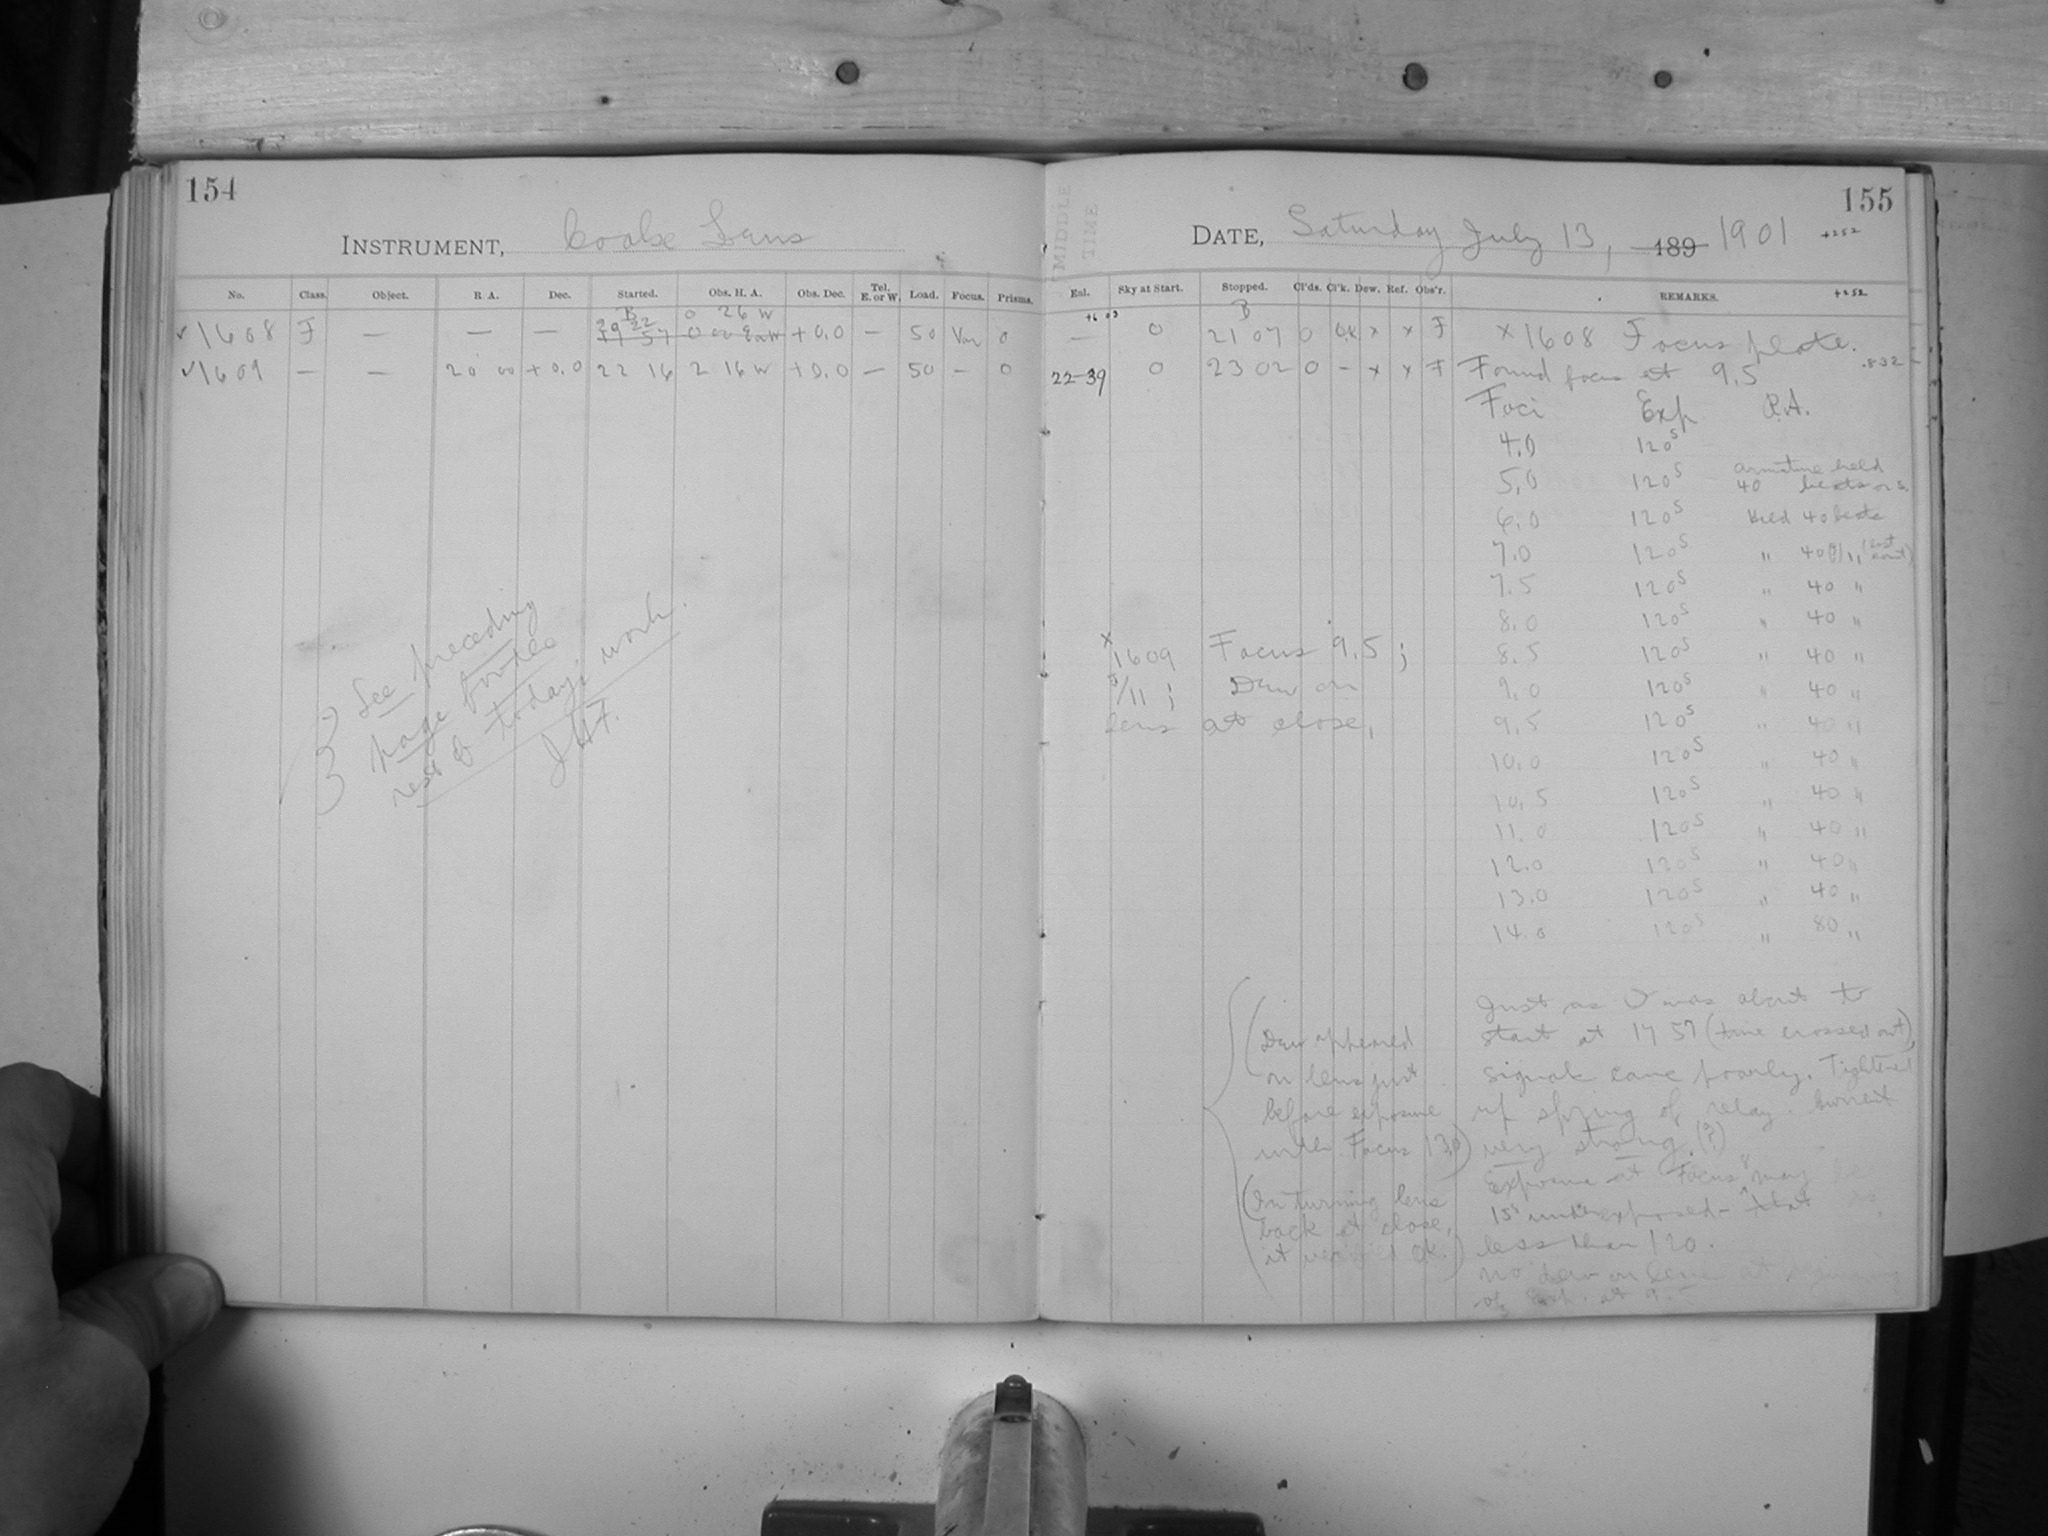 154
INSTRUMENT, Cooke Lens
No. Class. Object. R A. Dec. Started. Obs. H. A. Obs. Dec. Tel. E. or W. Load. Focus. Prisms.
B 0 26 W
✓1608 F — — — 19 57 +0.0 — 50 Var 0
✓1609 — — 20 00 +0.0 22 16 2 16 W +0.0 — 50 — 0
See preceding
page for the
rest of today's work.
JHF.
MIDDLE
TIME
155
DATE, Saturday July 13, 189 1901 +252
Enl. Sky at Start. Stopped. Cl'ds. Cl'k. Dew. Ref. Obs'r. REMARKS. +252
+6 03 B
— 0 21 07 0 OK x x F x 1608 Focus plate.
22-39 0 23 02 0 - x x F Found focus at 9.5 .832
Foci Exp. R.A.
4.0 120s
5.0 120s armature held
40 beats or s.
6.0 120s Held 40 beats
7.0 120s " 40(?) " (lost count)
7.5 120s " 40 "
8.0 120s " 40 "
8.5 120s " 40 "
9.0 120s " 40 "
9.5 120s " 40 "
10.0 120s " 40 "
10.5 120s " 40 "
11.0 120s " 40 "
12.0 120s " 40 "
13.0 120s " 40 "
14.0 120s " 80 "
x
1609 Focus 9.5;
f/11; Dew on
lens at close.
(Dew appeared
on lens just
before exposure
under Focus 13.0)
(In turning lens
back at close,
it verified OK.)
Just as I was about to
start at 19 57 (time crossed out),
signals came poorly. Tightened
up spring of relay. Current
very strong. (?)
Exposure at Focus 8 may be
15s underexposed - that
less than 120.
No dew on lens at beginning
of Exp. at 9.5